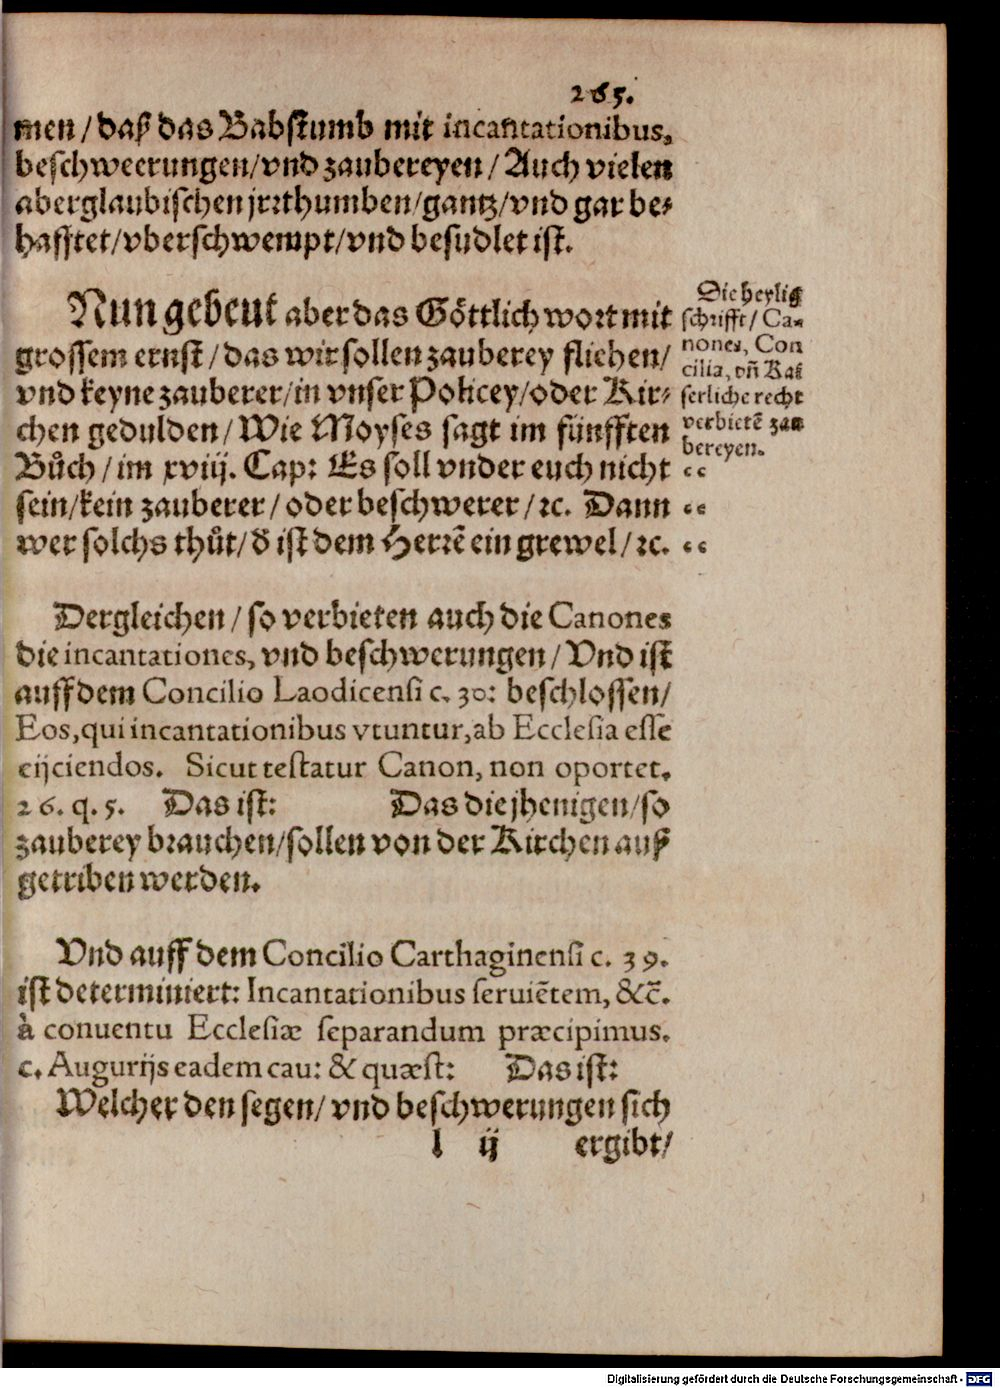 265.
men / daß das Babstumb mit incantationibus,
beschweerungen/vnd zaubereyen / Auch vielen
aberglaubischen jrrthumben/gantz/vnd gar be⸗
hafftet/vberschwempt/vnd besudlet ist.
Nun gebeut aber das Göttlich wort mit
grossem ernst / das wir sollen zauberey fliehen/
vnd keyne zauberer/in vnser Policey/oder Kir⸗
chen gedulden / Wie Moyses sagt im fünfften
Bůch / im xviij. Cap: Es soll vnder euch nicht
sein/kein zauberer / oder beschwerer / ꝛc. Dann
wer solchs thůt/ d̕ ist dem Herrē ein grewel / ꝛc.
Die heylig
schrifft / Ca-
nones, Con
cilia, vñ Kai
serliche recht
verbietē zau
bereyen.
“
“
“
Dergleichen / so verbieten auch die Canones
die incantationes, vnd beschwerungen / Vnd ist
auff dem Concilio Laodicensi c. 30: beschlossen/
Eos, qui incantationibus vtuntur, ab Ecclesia esse
eijciendos. Sicut testatur Canon, non oportet.
26. q. 5. Das ist: Das die jhenigen/so
zauberey brauchen/sollen von der Kirchen auß
getriben werden.
Vnd auff dem Concilio Carthaginensi c. 39.
ist determiniert: Incantationibus seruiētem, &c̄.
à conuentu Ecclesiæ separandum præcipimus.
c. Augurijs eadem cau: & quæst: Das ist:
Welcher den segen/ vnd beschwerungen sich
l ij ergibt/
Digitalisierung gefördert durch die Deutsche Forschungsgemeinschaft - DFG